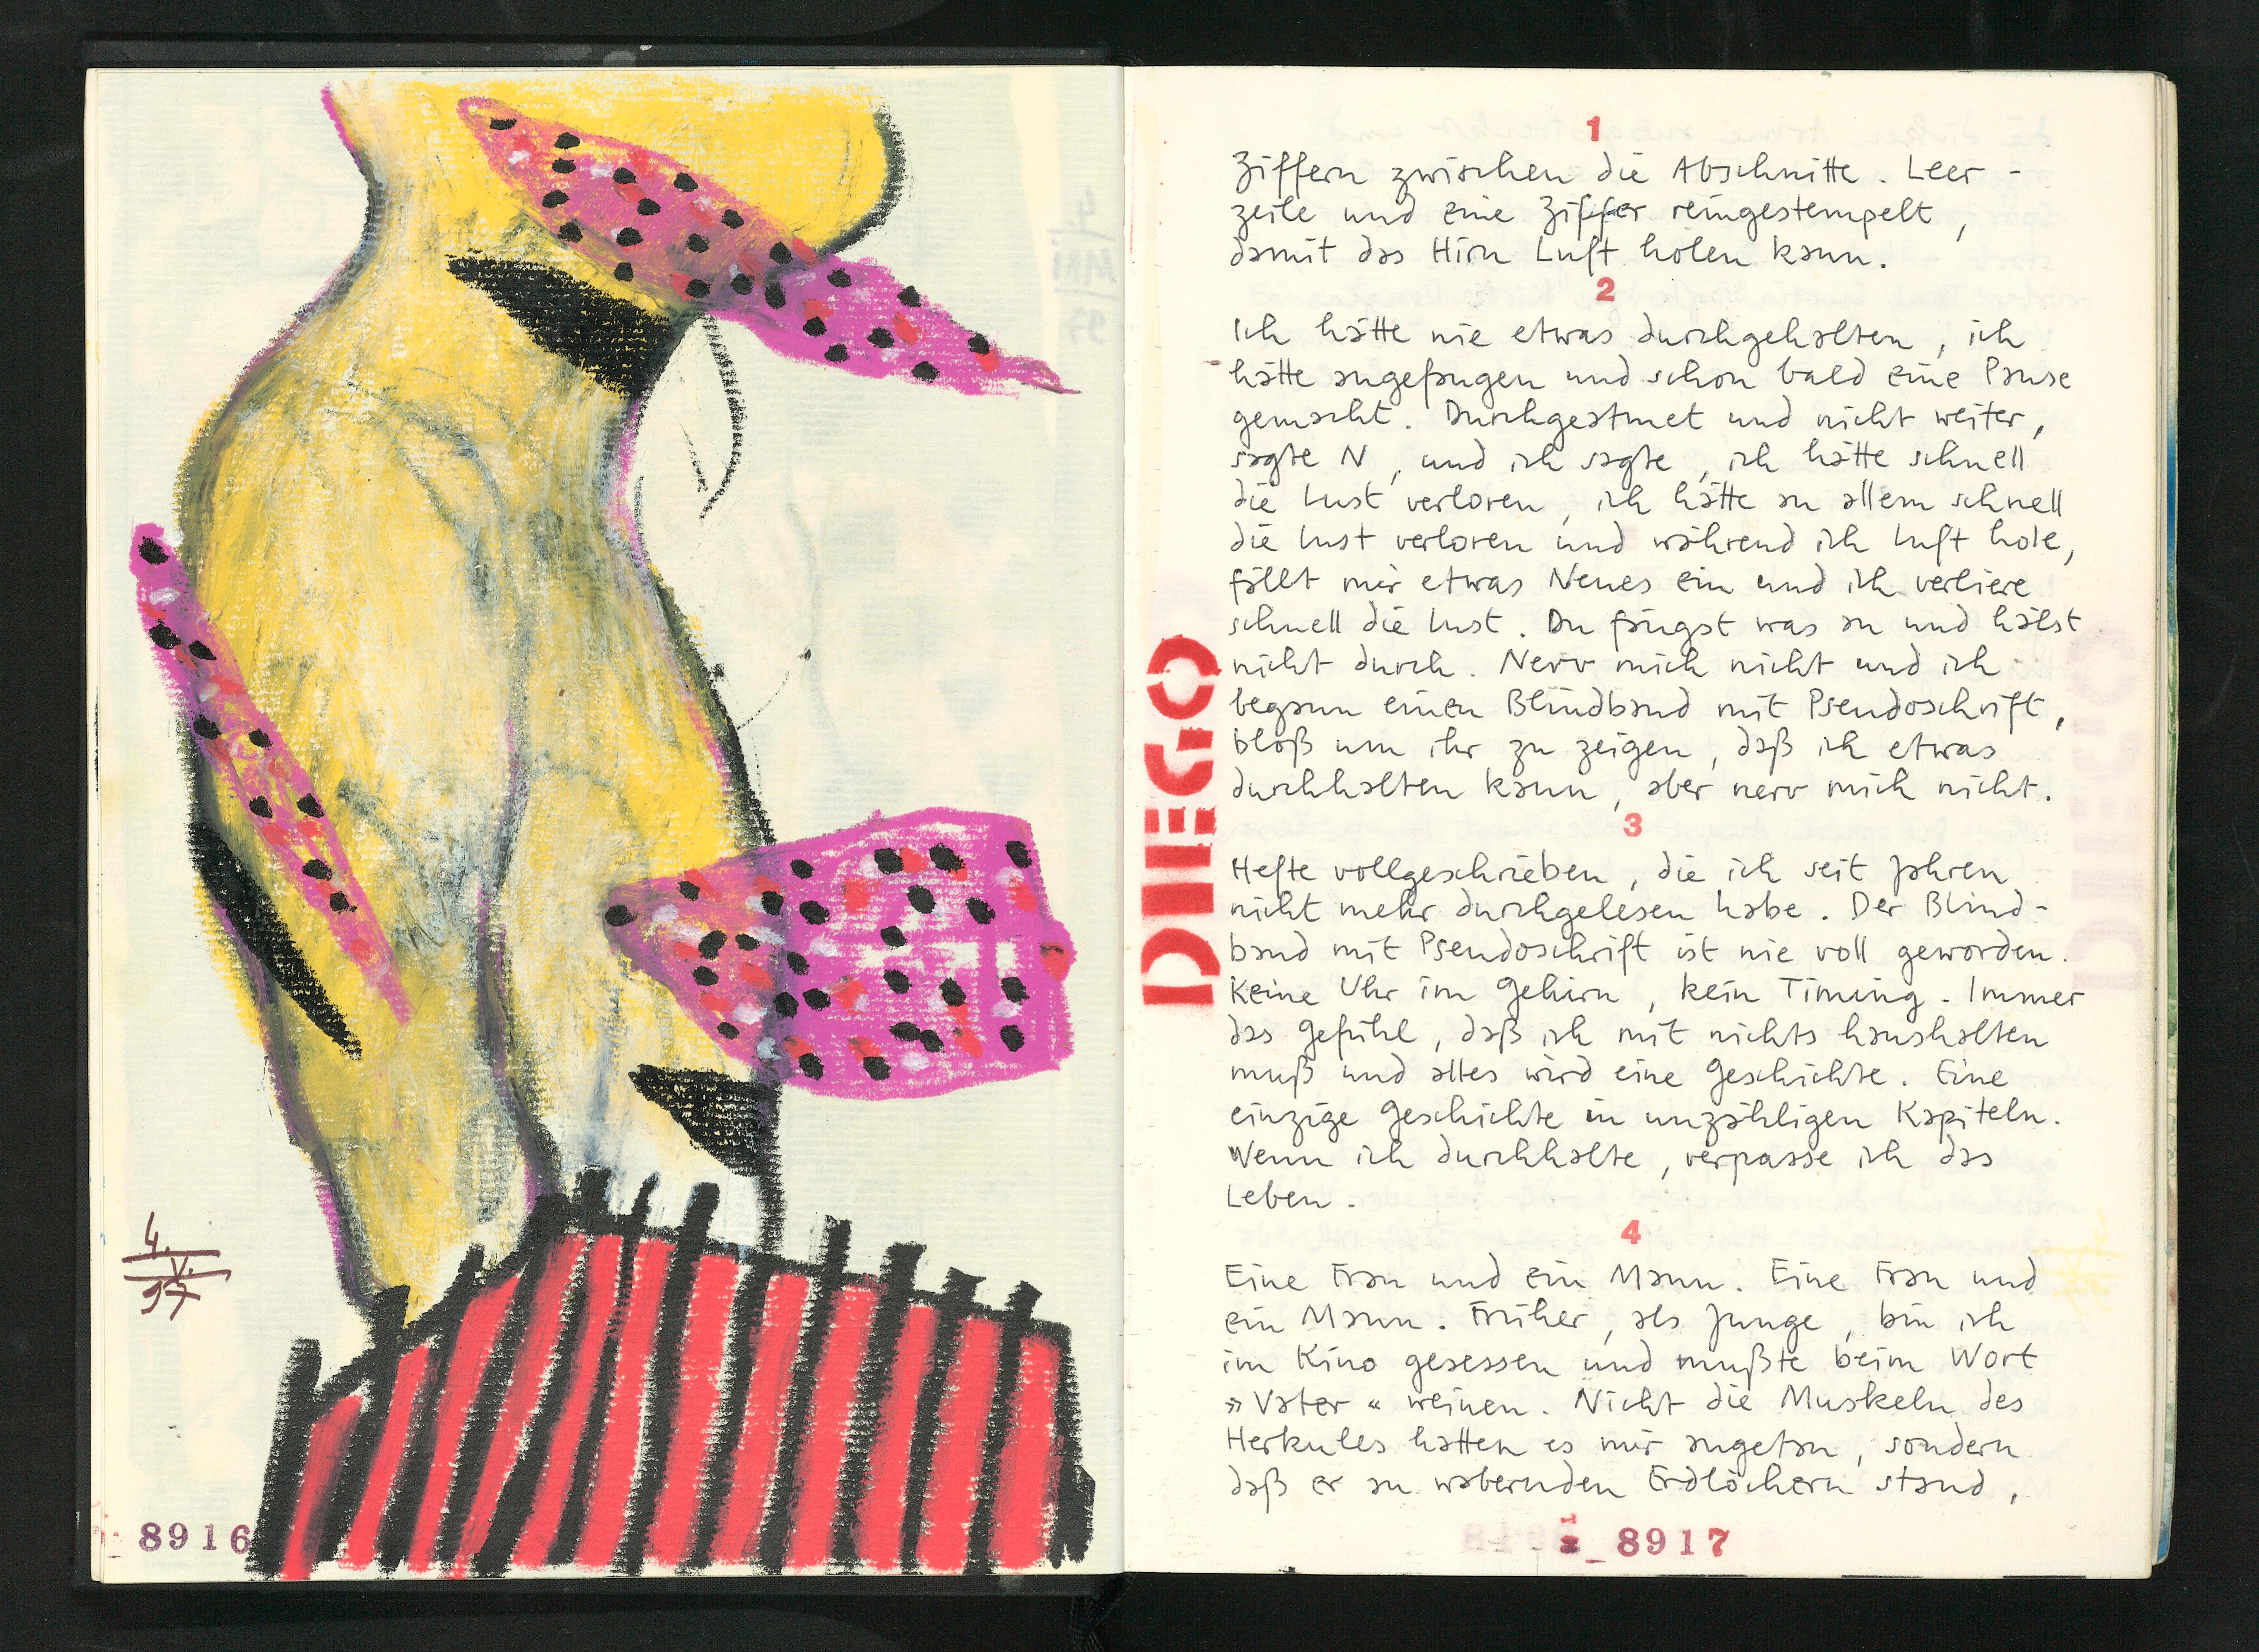 4.
V.
97
8916
DIEGO
1
Ziffern zwischen die Abschnitte. Leer-
zeile und eine Ziffer reingestempelt,
damit das Hirn Luft holen kann.
2
Ich hätte nie etwas durchgehalten, ich
hätte angefangen und schon bald eine Pause
gemacht. Durchgeatmet und nicht weiter,
sagte N, und ich sagte, ich hätte schnell
die Lust verloren, ich hätte an allem schnell
die Lust verloren und während ich Luft hole,
fällt mir etwas Neues ein und ich verliere
schnell die Lust. Du fängst was an und hälst
nicht durch. Nerv mich nicht und ich
begann einen Blindband mit Pseudoschrift,
bloß um ihr zu zeigen, daß ich etwas
durchhalten kann, aber nerv mich nicht.
3
Hefte vollgeschrieben, die ich seit Jahren
nicht mehr durchgelesen habe. Der Blind-
band mit Pseudoschrift ist nie voll geworden.
Keine Uhr im Gehirn, kein Timing. Immer
das Gefühl, daß ich mit nichts haushalten
muß und alles wird eine Geschichte. Eine
einzige Geschichte in unzähligen Kapiteln.
Wenn ich durchhalte, verpasse ich das
Leben.
4
Eine Frau und ein Mann. Eine Frau und
ein Mann. Früher, als Junge, bin ich
im Kino gesessen und mußte beim Wort
»Vater« weinen. Nicht die Muskeln des
Herkules hatten es mir angetan, sondern
daß er an wabernden Erdlöchern stand,
8917